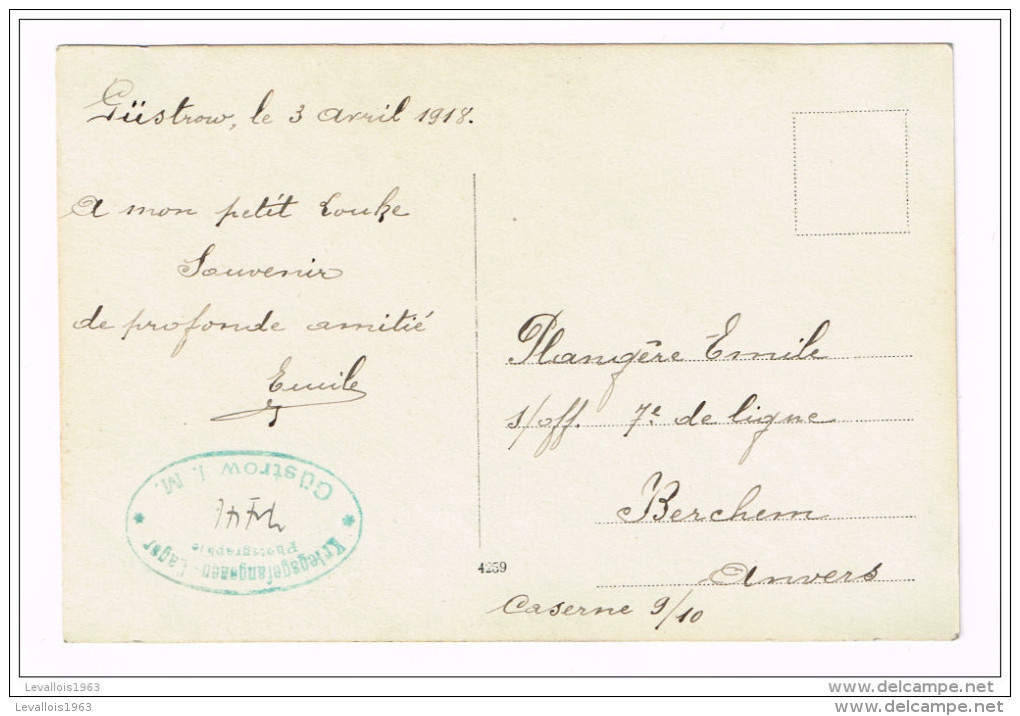 Güstrow, le 3 avril 1918.
A mon petit Louke
Souvenir
de profonde amitié
Emile
Kriegsgefangenen-Lager
Photographie
Güstrow i. M.
Plangère Émile
s/off. 7e de ligne
Berchem
Anvers
Caserne 9/10
4259
Levallois1963
www.delcampe.net
Levallois1963
www.delcampe.net